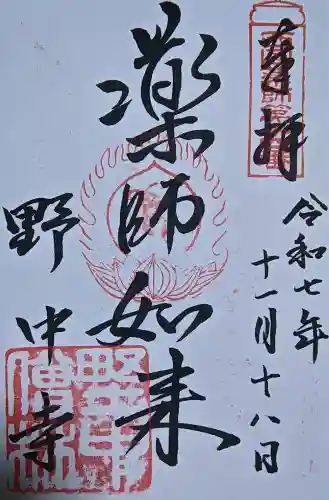 奉拝
令和七年
十一月十八日
薬師如来
野中寺